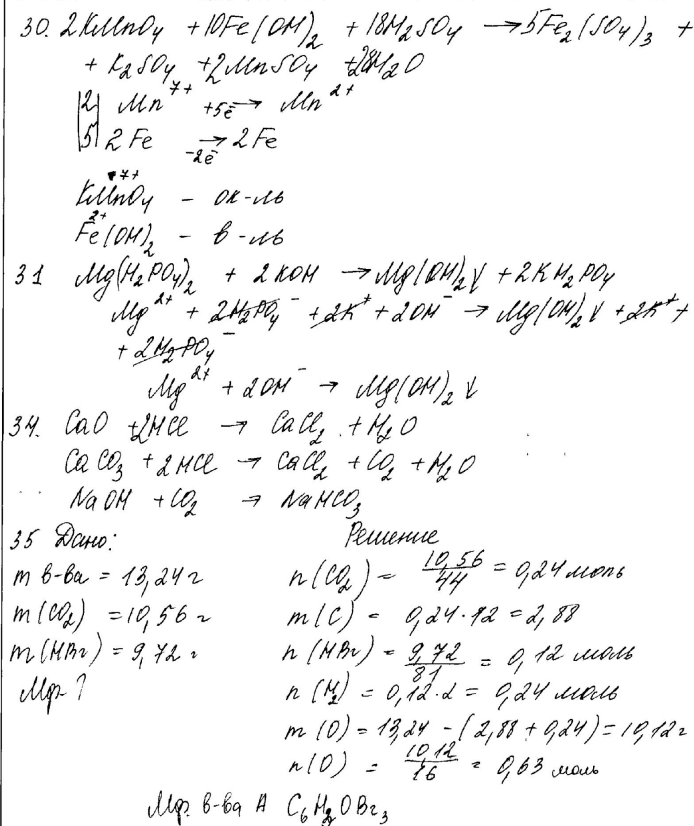 30. 2KMnO₄ + 10Fe(OH)₂ + 18H₂SO₄ → 5Fe₂(SO₄)₃ +
+ K₂SO₄ + 2MnSO₄ + 28H₂O
|2| Mn⁷⁺ +5ē→ Mn²⁺
|5| 2Fe -2ē→ 2Fe
⁷⁺
KMnO₄ - ок-ль
²⁺
Fe(OH)₂ - в-ль
31 Mg(H₂PO₄)₂ + 2KOH → Mg(OH)₂↓ + 2KH₂PO₄
Mg²⁺ + 2H₂PO₄⁻ + 2K⁺ + 2OH⁻ → Mg(OH)₂↓ + 2K⁺ +
+ 2H₂PO₄⁻
Mg²⁺ + 2OH⁻ → Mg(OH)₂↓
34. CaO + 2HCl → CaCl₂ + H₂O
CaCO₃ + 2HCl → CaCl₂ + CO₂ + H₂O
NaOH + CO₂ → NaHCO₃
35 Дано: Решение
m в-ва = 13,24 г n(CO₂) = 10,56/44 = 0,24 моль
m(CO₂) = 10,56 г m(C) = 0,24·12 = 2,88
m(HBr) = 9,72 г n(HBr) = 9,72/81 = 0,12 моль
Мф-? n(H₂) = 0,12·2 = 0,24 моль
m(O) = 13,24 - (2,88 + 0,24) = 10,12 г
n(O) = 10,12/16 = 0,63 моль
Мф. в-ва А C₆H₂OBr₃